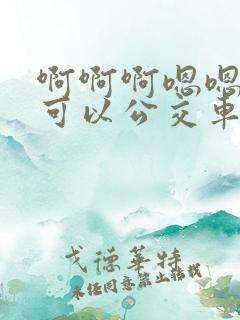 啊啊啊嗯嗯
可以公交车
戈德华特
未经同意禁止转载